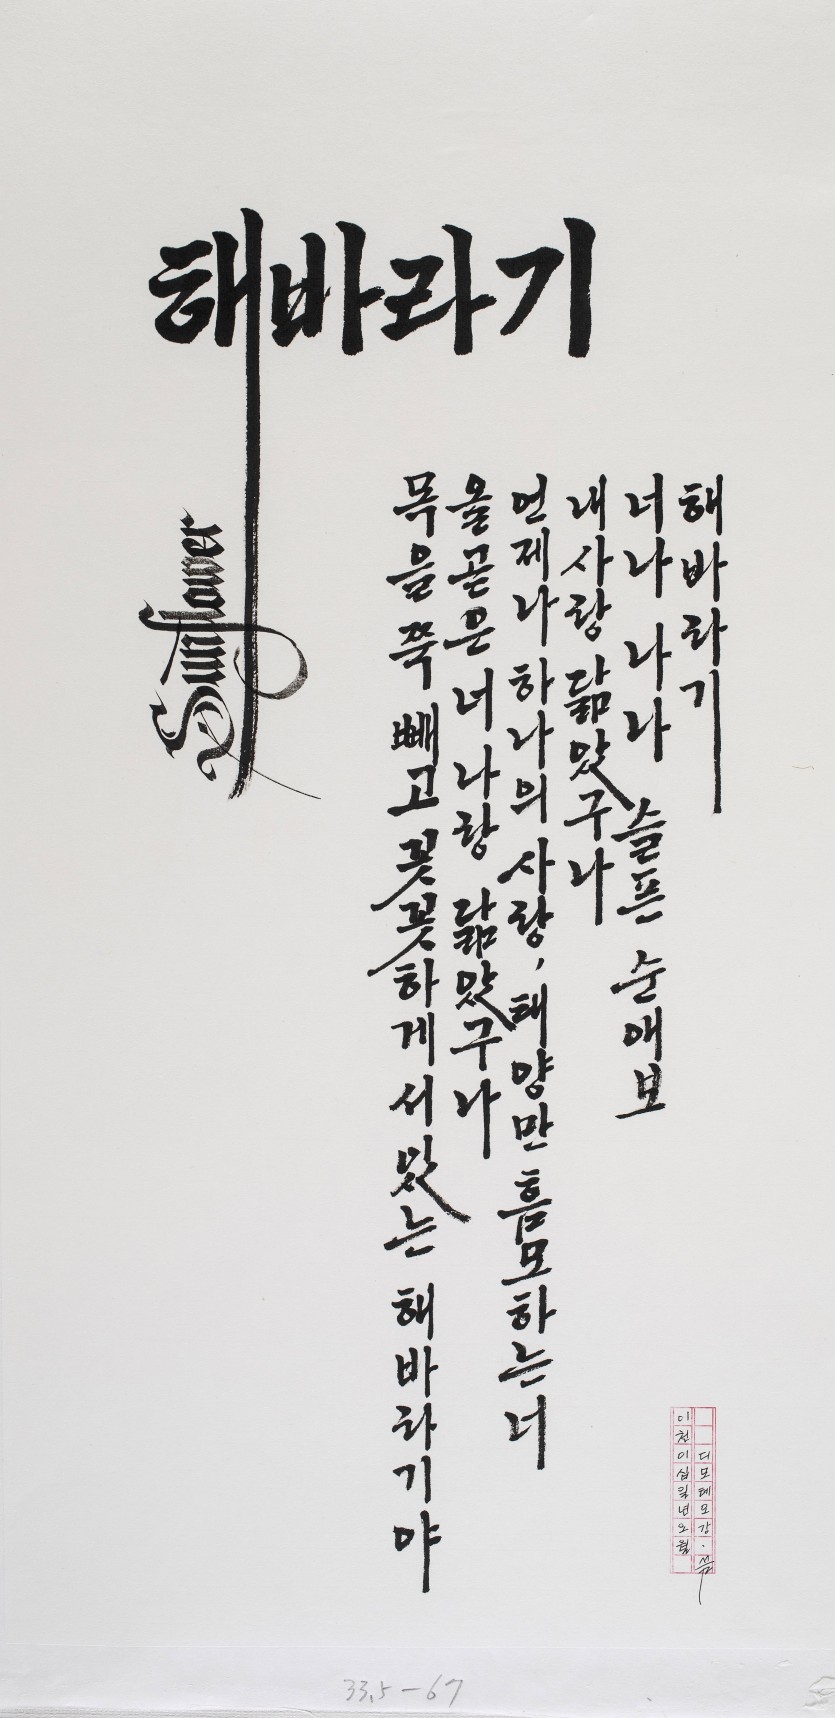 해바라기
Sunflower
해바라기
너나 나나 슬픈 순애보
내사랑 닮았구나
언제나 하나의 사랑, 태양만 흠모하는 너
올곧은 너 나랑 닮았구나
목을 쭉 빼고 꼿꼿하게 서 있는 해바라기야
디모테모강 · 씀
이천이십일년오월
33,5-67